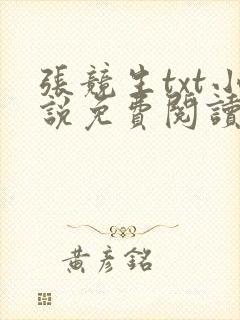 張競生txt小
說免費閱讀
黃彥銘